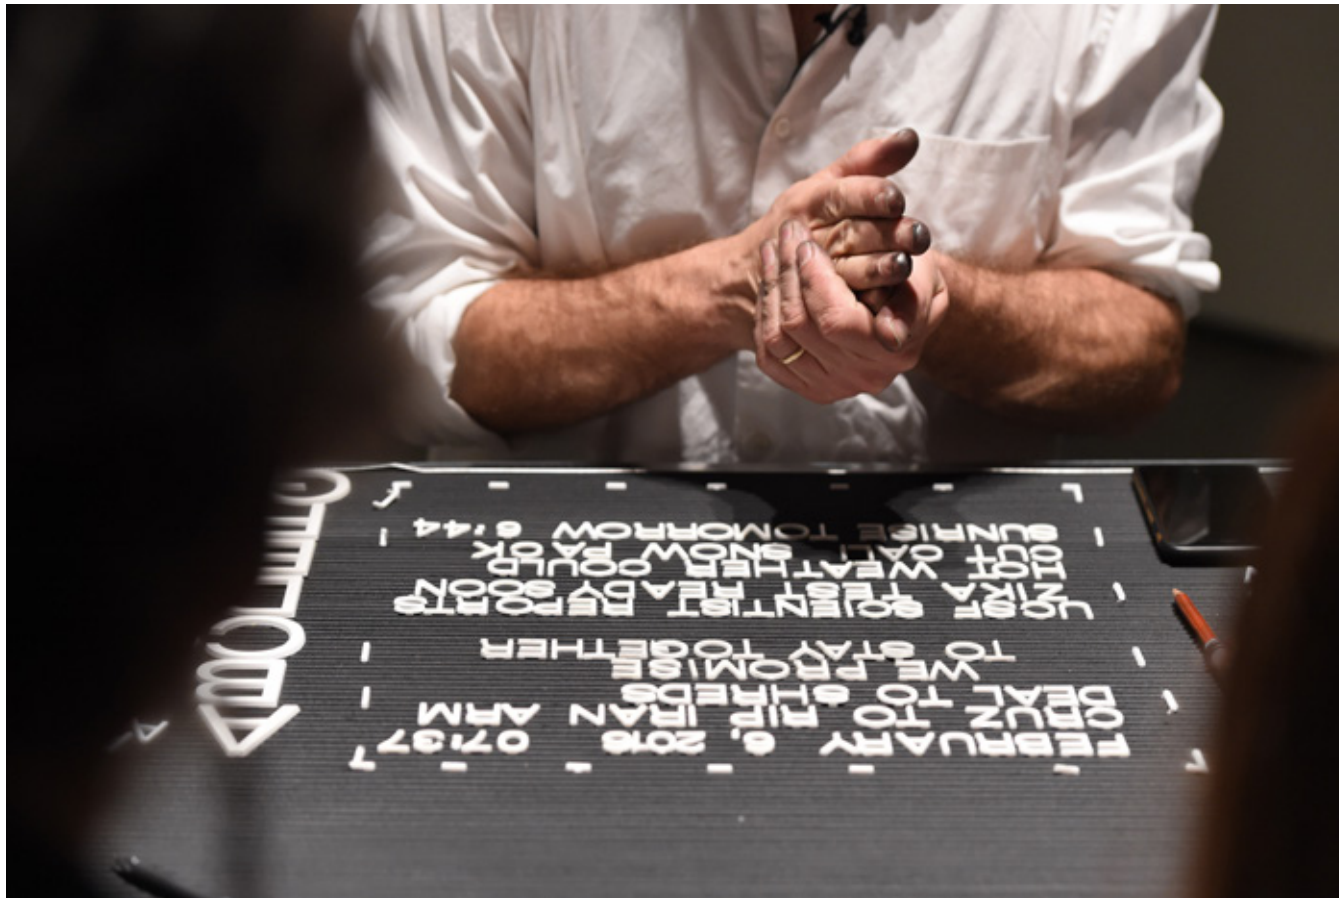 FEBRUARY 6, 2016 07:37
CRUZ TO RIP IRAN ARM
DEAL TO SHREDS
WE PROMISE
TO STAY TOGETHER
UCSF SCIENTIST REPORTS
ZIKA TEST READY SOON
HOT WEATHER COULD
CUT CALI SNOW PACK
SUNRISE TOMORROW 6:44